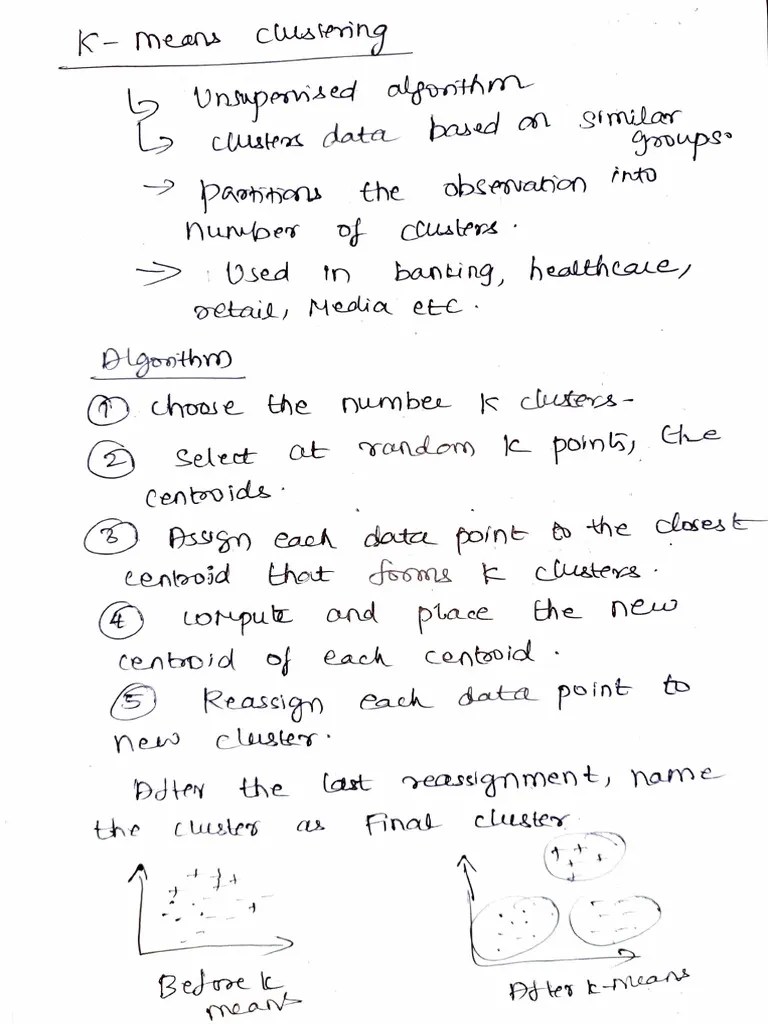 K- means clustering
↳ Unsupervised algorithm
↳ clusters data based on similar
groups.
→ partitions the observation into
number of clusters.
⇒ Used in banking, healthcare,
retail, Media etc.
Algorithm
① choose the number K clusters-
② Select at random K points, the
centroids.
③ Assign each data point to the closest
centroid that forms K clusters.
④ compute and place the new
centroid of each centroid.
⑤ Reassign each data point to
new cluster.
After the last reassignment, name
the cluster as Final cluster
Before K
means
After k-means